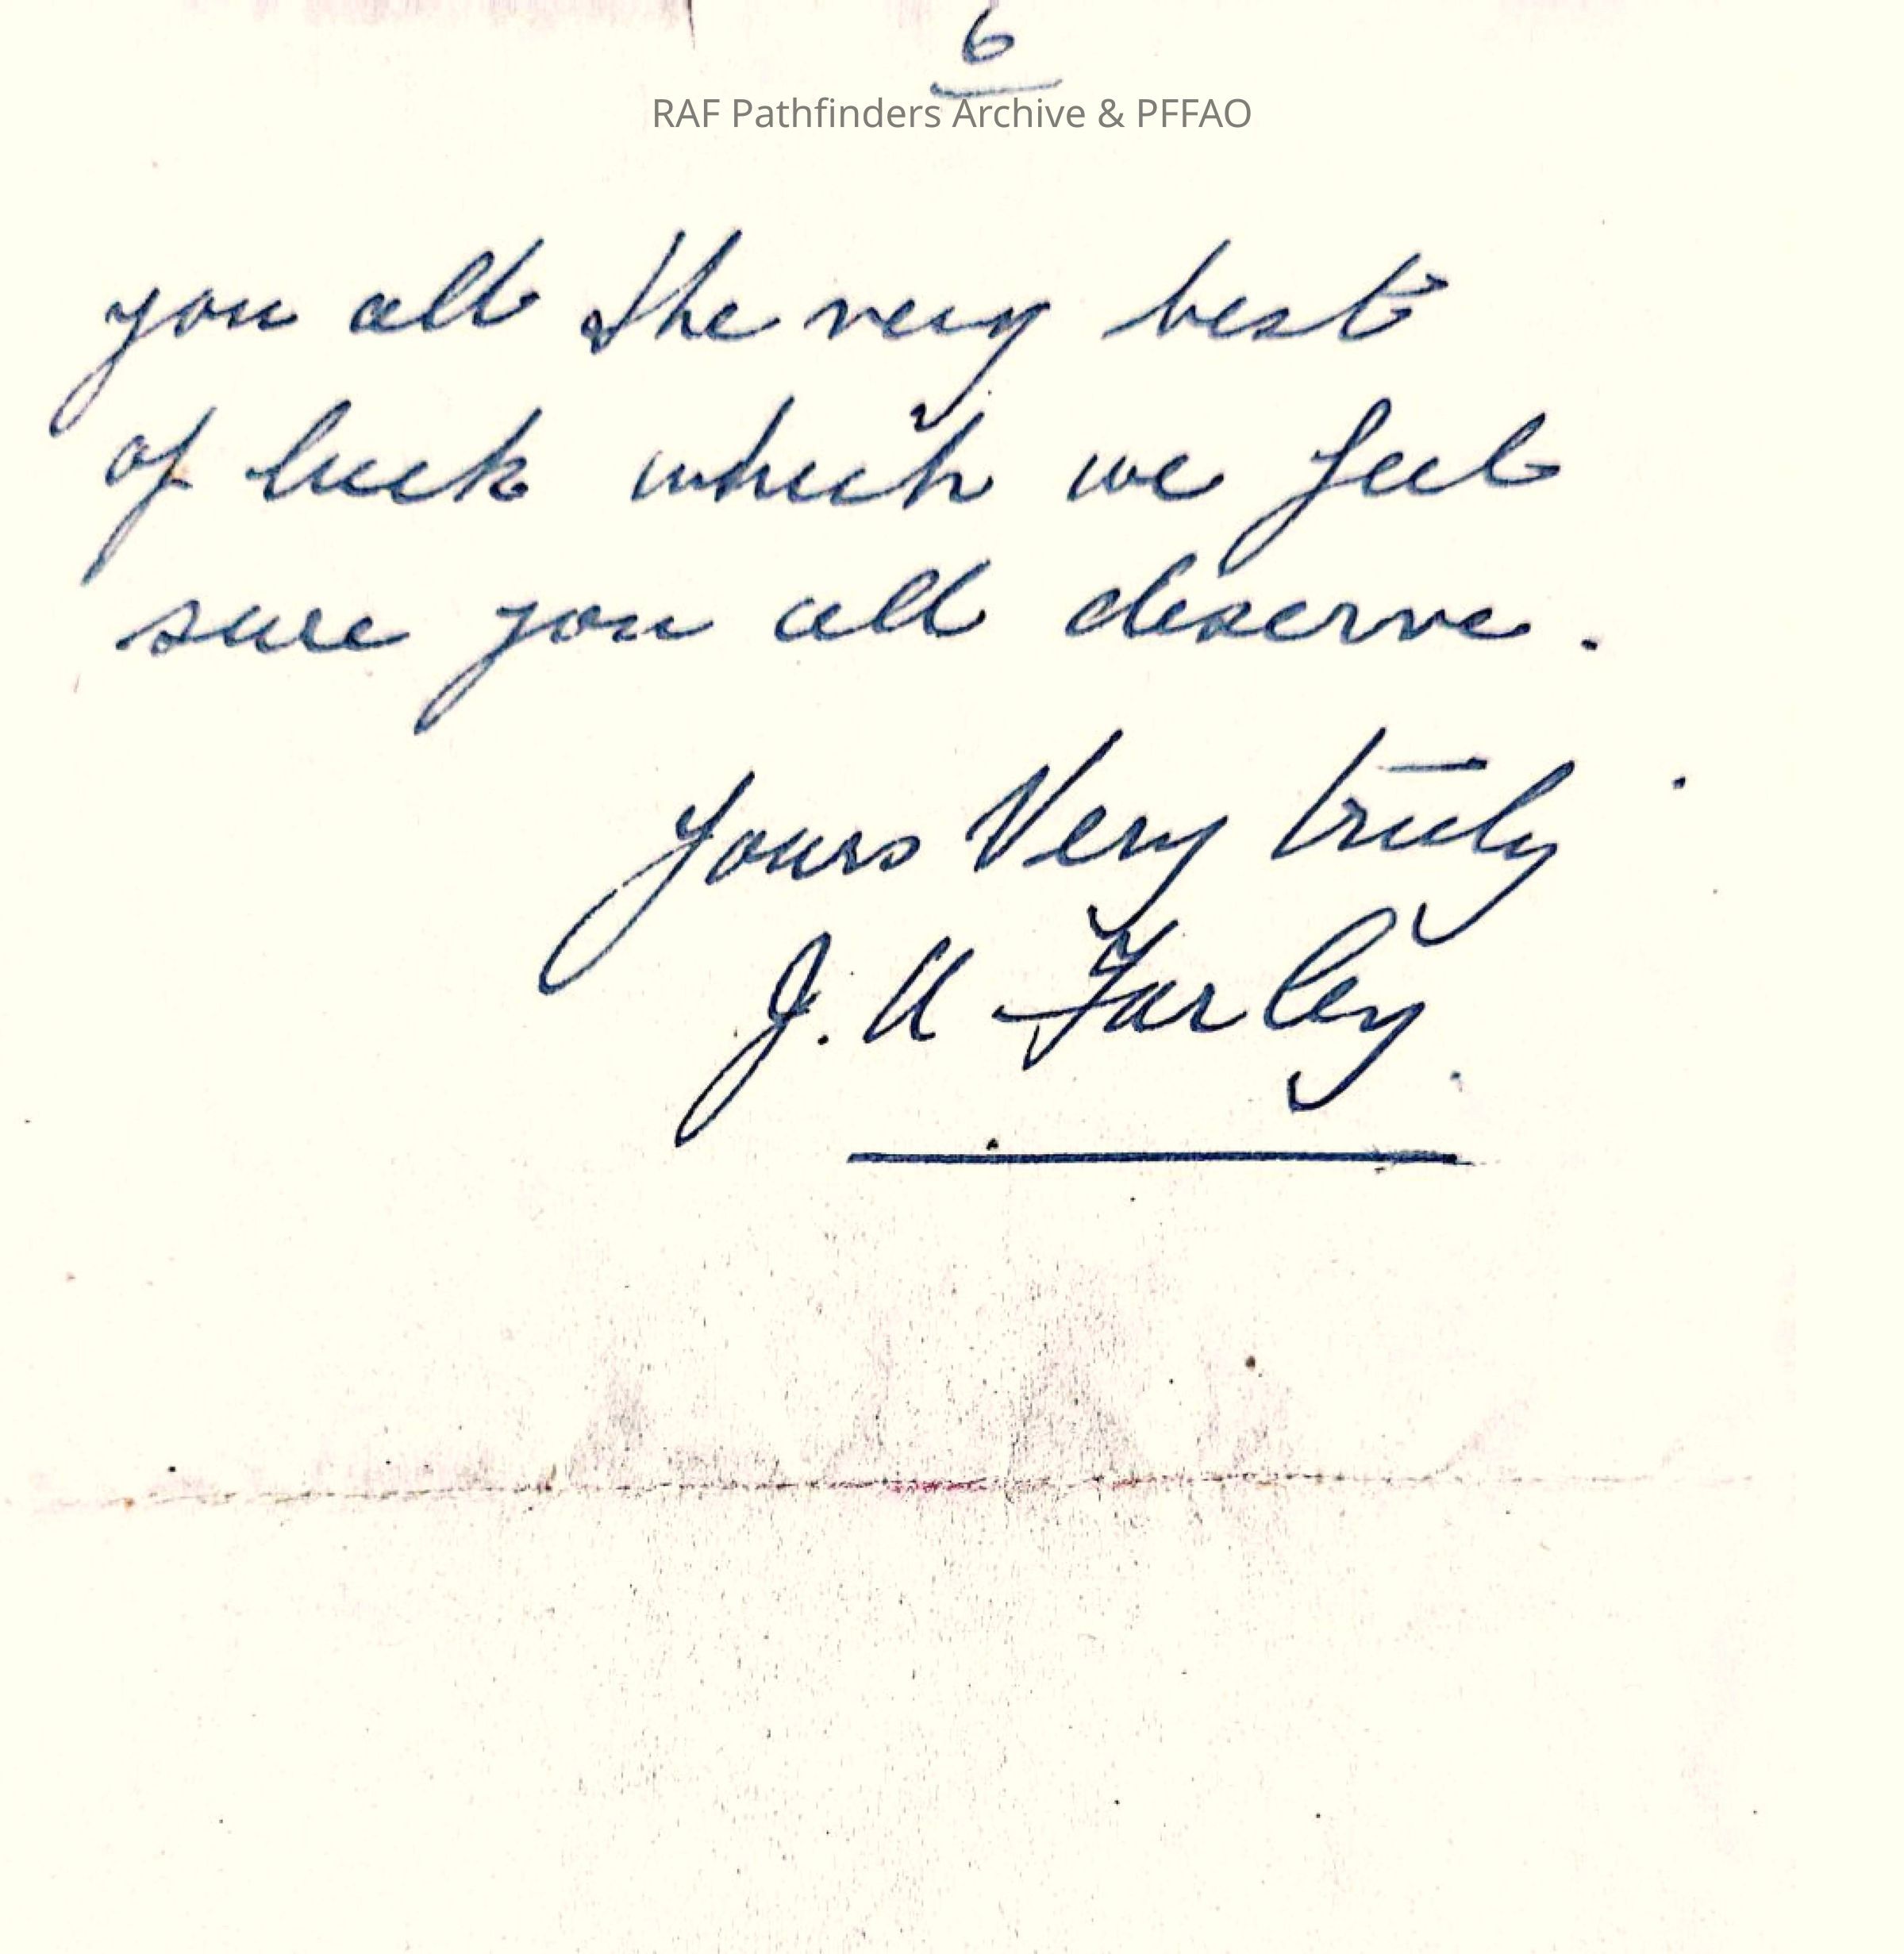 6
RAF Pathfinders Archive & PFFAO
you all the very best
of luck which we feel
sure you all deserve.
Yours Very truly
J. A Farley.